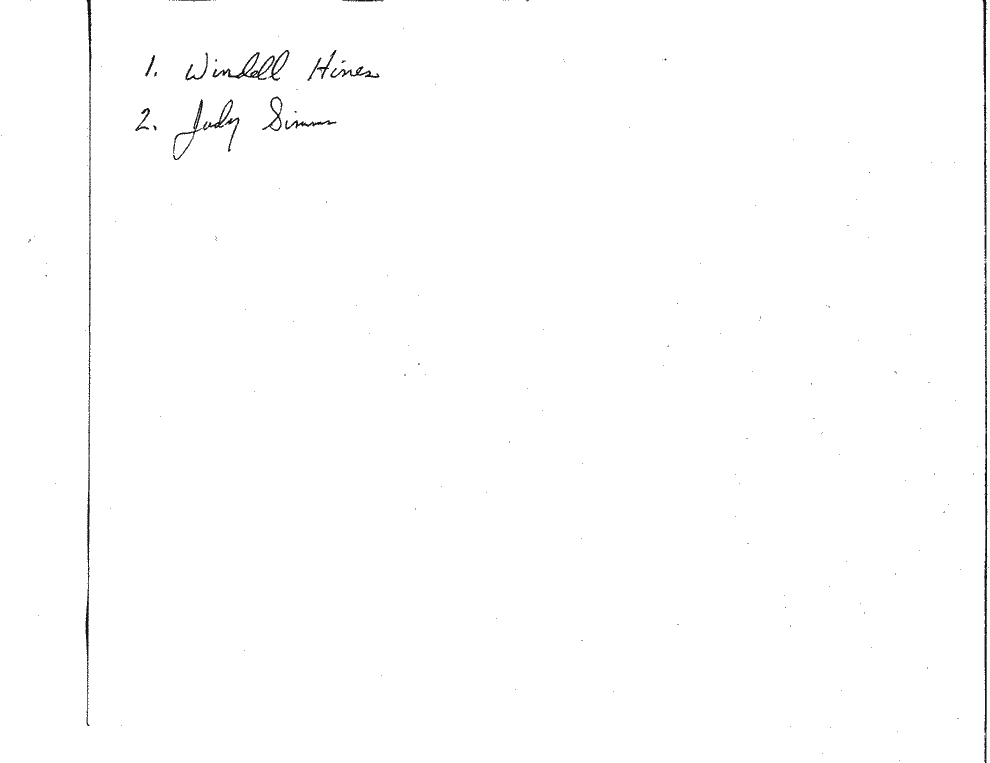 1. Windell Hines
2. Judy Simms